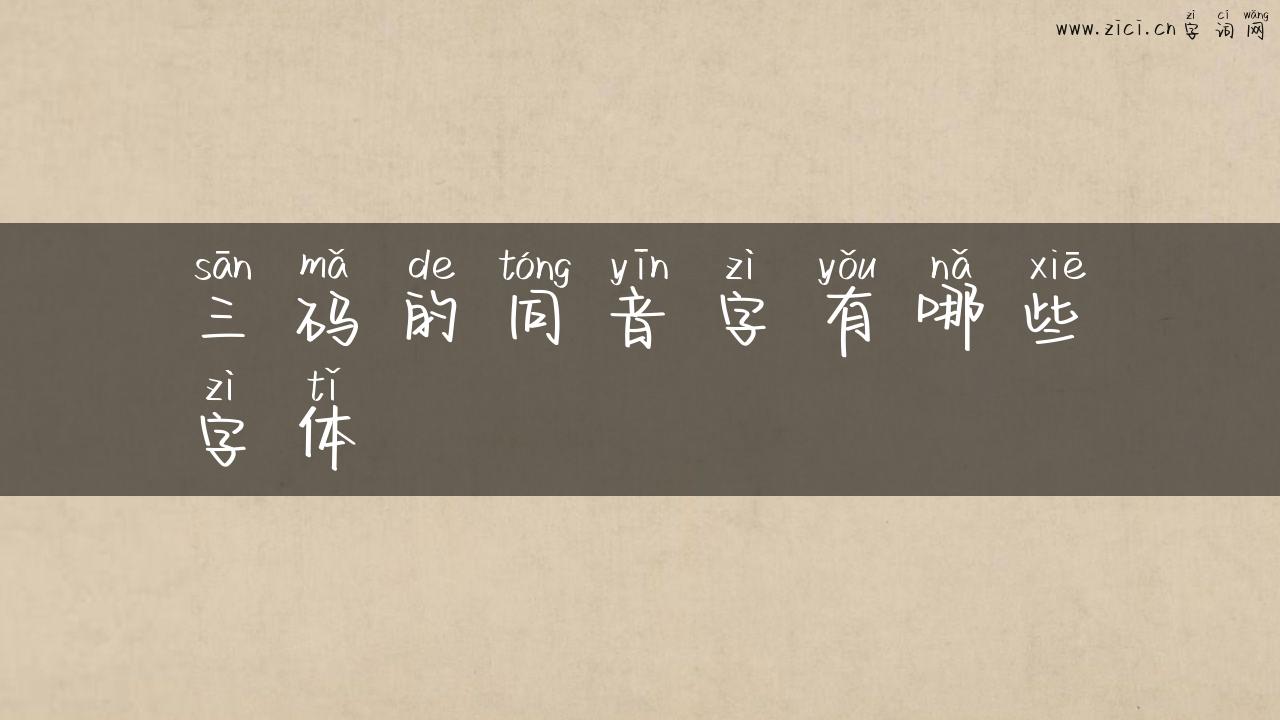 zì cí wǎng
www.zici.cn 字 词 网
sān mǎ de tóng yīn zì yǒu nǎ xiē
三 码 的 同 音 字 有 哪 些
zì tǐ
字 体